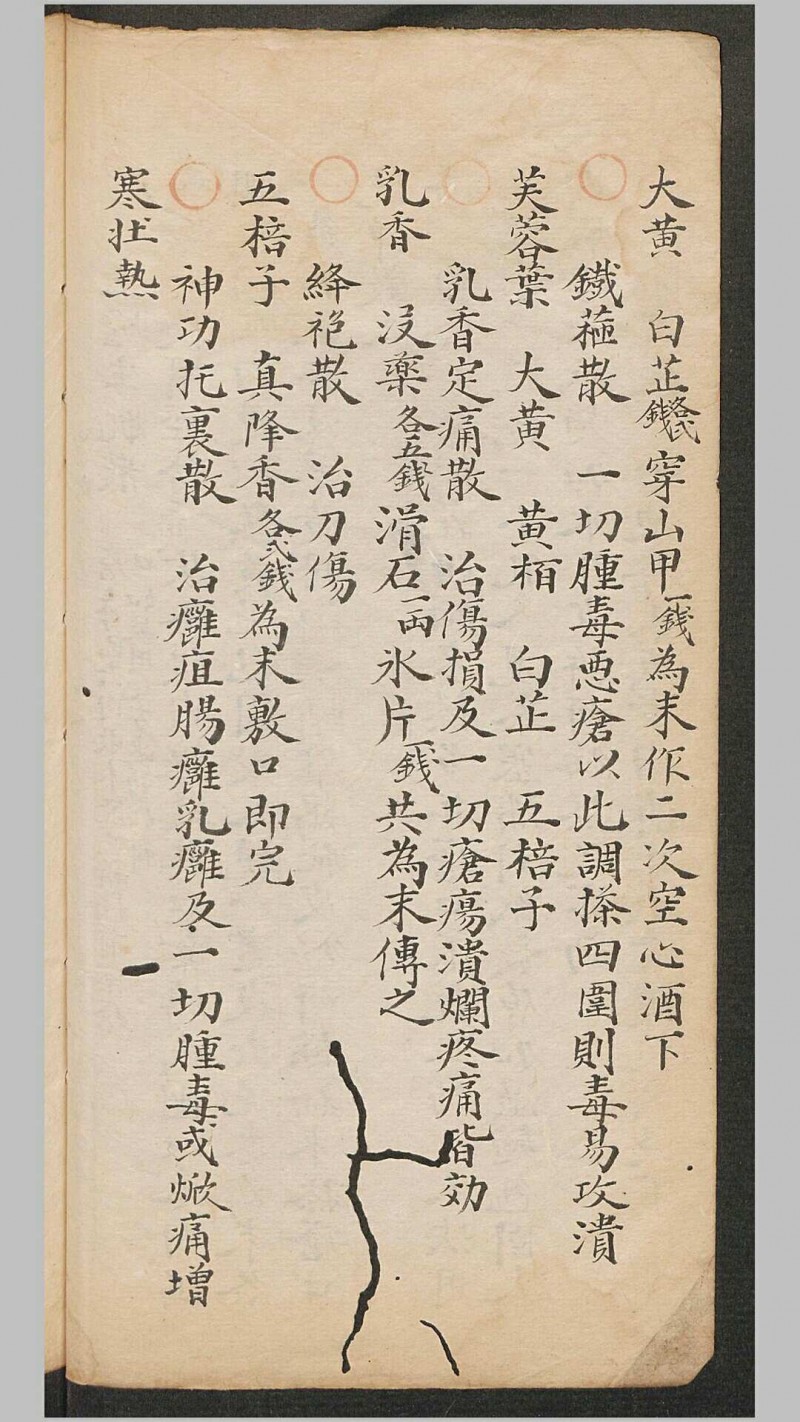 大黃 白芷各弍錢 穿山甲一錢為末作二次空心酒下
鐵箍散 一切腫毒惡瘡以此調搽四圍則毒易攻潰
芙蓉葉 大黃 黃栢 白芷 五棓子
乳香定痛散 治傷損及一切瘡瘍潰爛疼痛皆効
乳香 沒藥各五錢 滑石一両 氷片一錢 共為末傅之
絳袍散 治刀傷
五棓子 真降香各弍錢為末敷口即完
神功托裏散 治癰疽腸癰乳癰及一切腫毒或焮痛增
寒壮熱